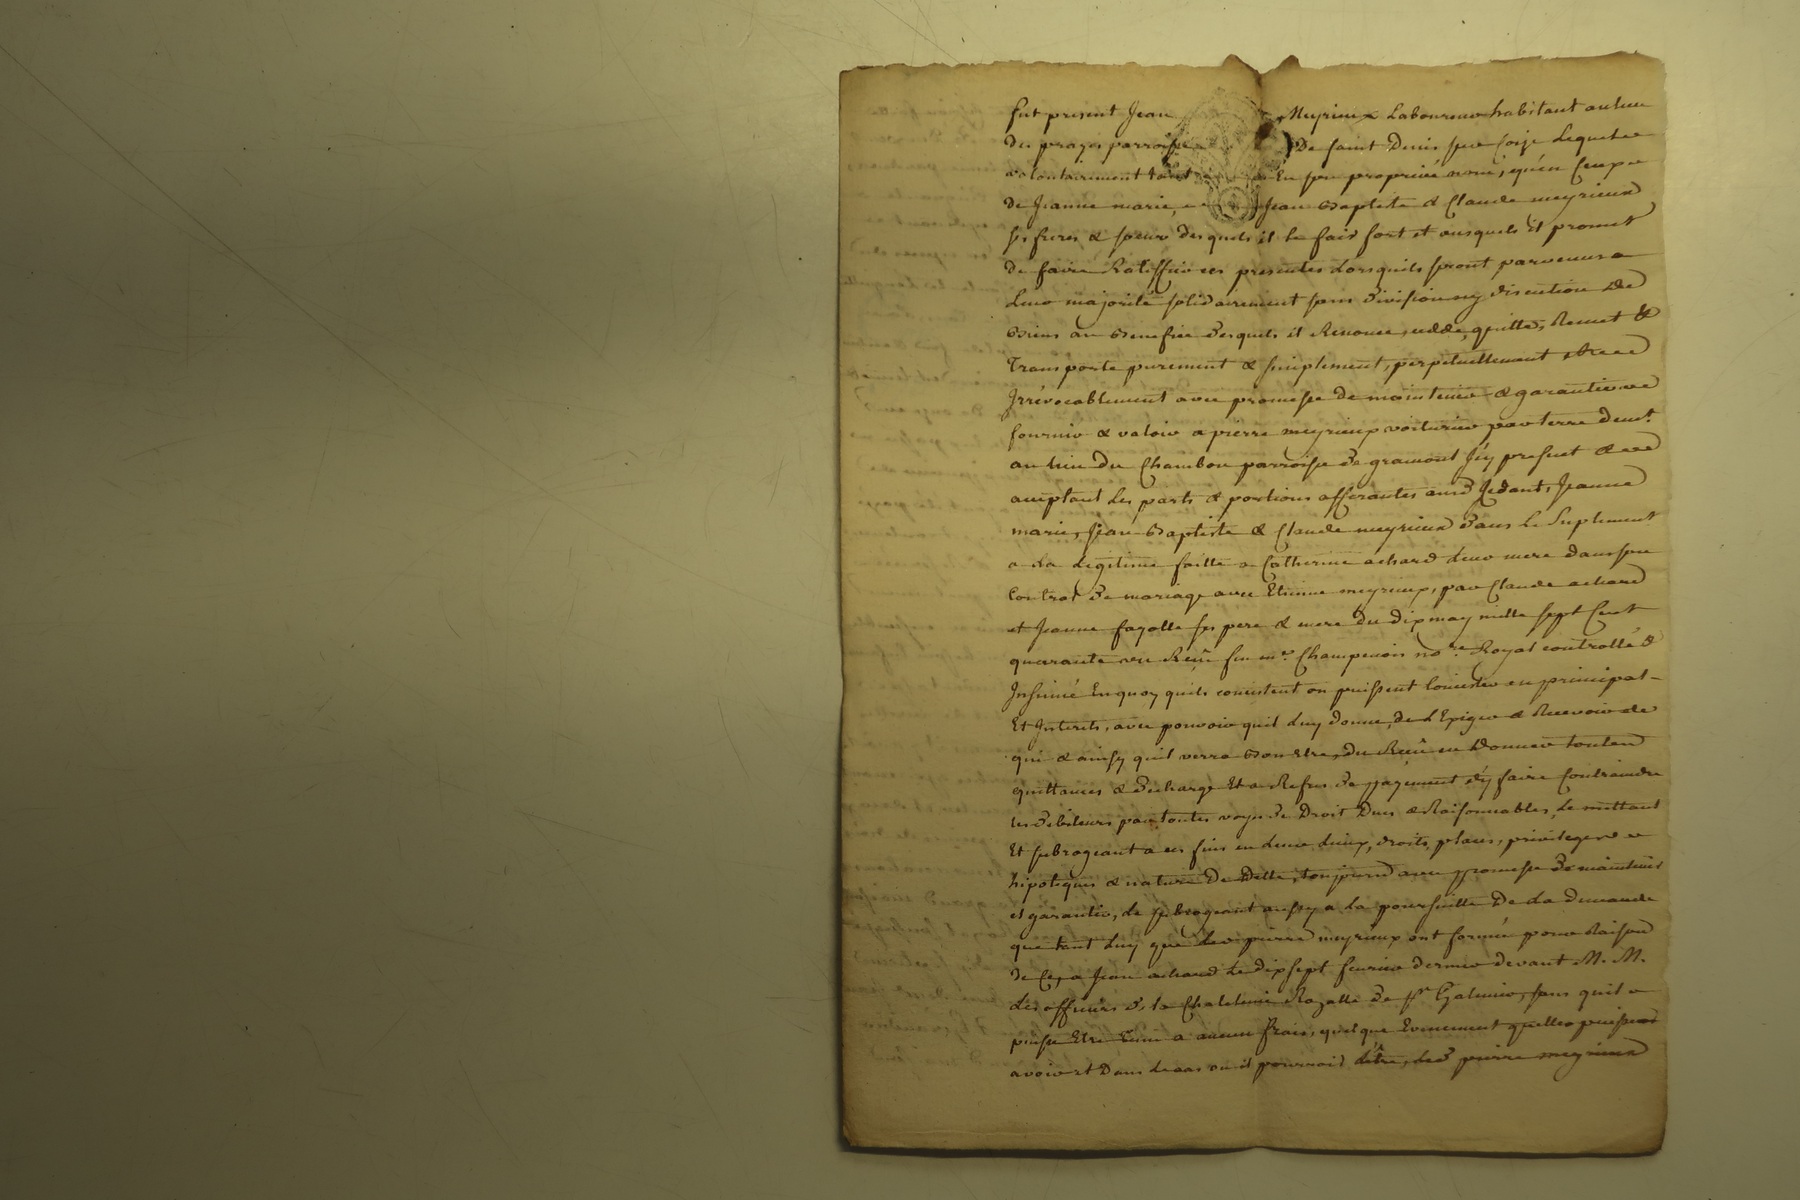 fut present Jean Meyrieux Laboureur habitant au lieu
du prazos parroisse De saint Denis sur Coize Lequel
volontairement tant En son proprivé nom, qu'en Ceux
de Jeanne marie, Jean Baptiste & Claude meyrieux
ses freres & soeur desquels il se fait fort et ausquels il promet
de faire Ratiffier ces presentes Lorsquils seront parvenus a
Leur majorité solidairement sans division ny discution De
Biens au Benefice desquels il Renonce, cedde, quitte, Remet &
Transporte purement & simplement, perpetuellement &
Irrévocablement avec promesse de maintenir & garantir
fournir & valoir a pierre meyrieux voiturier par terre demt
au lieu du Chambon parroisse de gramont Icy present &
acceptant Les parts & portions afferantes aud Cedant, Jeanne
marie, Jean Baptiste & Claude meyrieux dans Le Suplement
a La Légitime faitte a Catherine achard Leur mere dans son
Contrat de mariage avec Etienne meyrieux, par Claude achard
et Jeanne fayolle ses pere & mere du dix may mille sept Cent
quarante un Reçû feu me Champenois nore Royal controllé &
Insinué En quoy quils consistent ou puissent Consister en principal
Et Interets, avec pouvoir quil Luy donne, de L'Exiger & Recevoir de
qui & ainsy quil verra Bon Etre, du Reçû en Donner toutes
quittances & decharge Et a Refus de payement d'y faire Contraindre
les debiteurs par toutes voyes de Droit Dues & Raisonnables, Le mettant
Et subrogeant a ces fins en Leur Lieux, droits, places, privileges
hipoteques & nature De Dette, toujours avec promesse de maintenir
et garantir, Le subrogeant aussy a La poursuitte De La demande
que tant Luy que Led pierre meyrieux ont formée pour Raison
de Ce, a Jean achard Le dix sept fevrier dernier devant M.M.
Les officiers de la Chatelenie Royalle de St Galmier, sans quil
puisse Etre tenu a aucun frais, quelque Evenement quelles puissent
avoir et Dans Le cas ou il pourroit L'être, Led pierre meyrieux